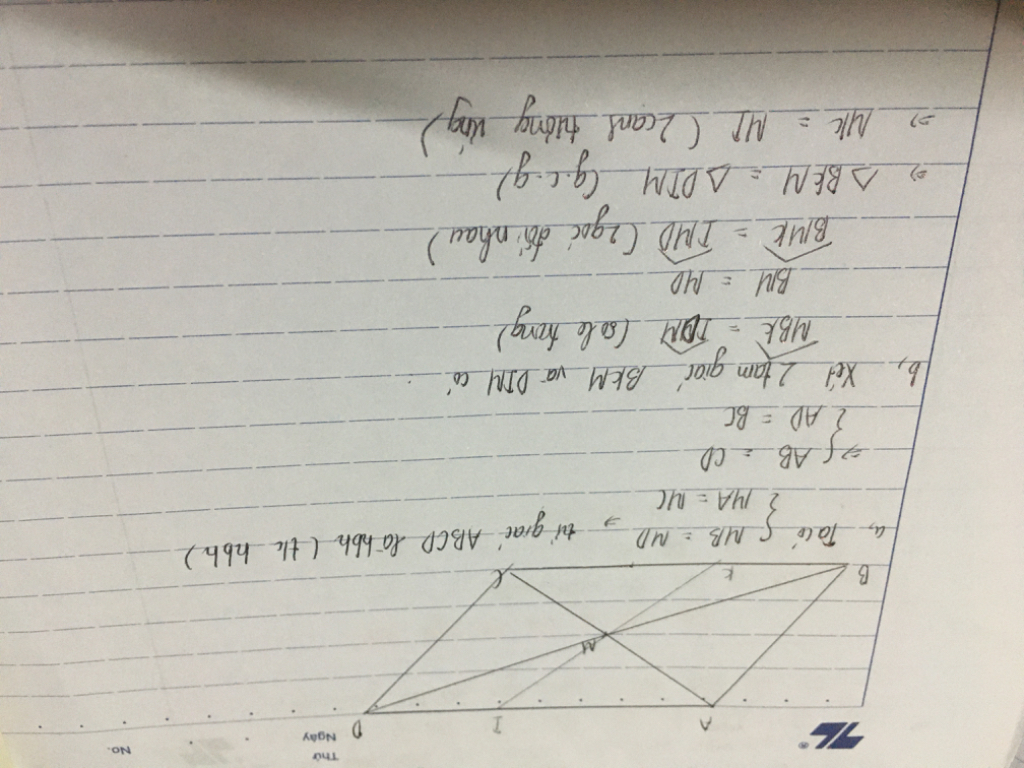 Thứ
Ngày
No.
A I D
M
B K C
a, Ta có { MB = MD
MA = MC ⇒ tứ giác ABCD là hbh ( t/c hbh )
⇒ { AB = CD
AD = BC
b, Xét 2 tam giác BKM và DIM có
MBK = IDM (so le trong)
BM = MD
BMK = IMD (2 góc đối nhau)
⇒ △ BKM = △ DIM (g.c.g)
⇒ MK = MI ( 2 cạnh tương ứng )